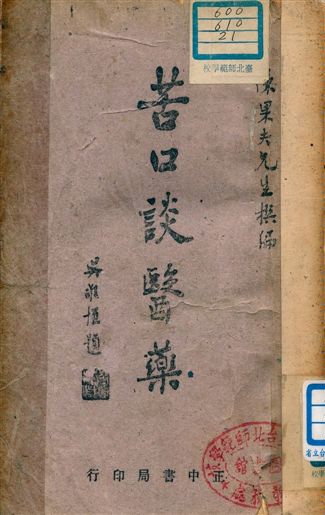 600
610
21
臺北師範學校
陳果夫先生撰編
苦口談醫藥
吳敬恆題
正中書局印行